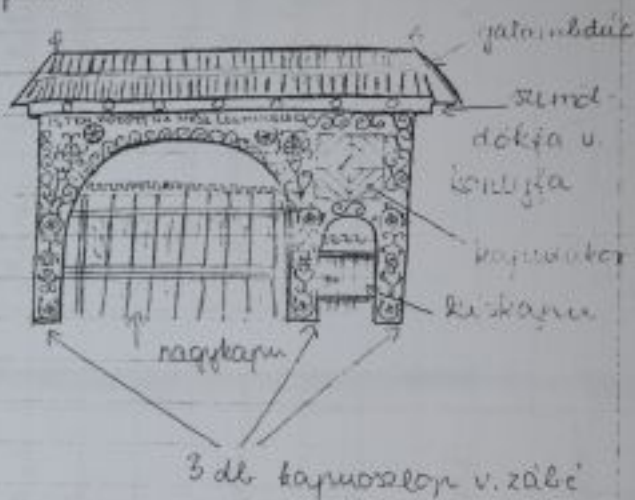 galambdúc
szemöl-
dökfa v.
kontyfa
kaputükör
kiskapu
nagykapu
3 db kapuoszlop v. zábé